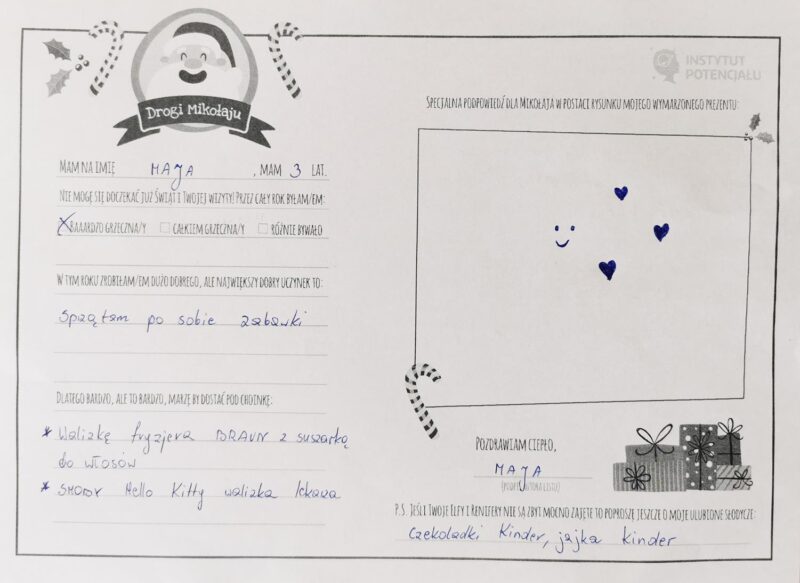 Drogi Mikołaju
Mam na imię MAJA, mam 3 lat.
Nie mogę się doczekać już Świąt i Twojej wizyty! Przez cały rok byłam/em:
X Baaardzo grzeczna/y □ Całkiem grzeczna/y □ Różnie bywało
W tym roku zrobiłam/em dużo dobrego, ale największy dobry uczynek to:
Sprzątam po sobie zabawki
Dlatego bardzo, ale to bardzo, marzę by dostać pod choinkę:
* Walizkę fryzjera BRAUN z suszarką
do włosów
* SMOBY Hello Kitty walizka lekarza
INSTYTUT
POTENCJAŁU
Specjalna podpowiedź dla Mikołaja w postaci rysunku mojego wymarzonego prezentu:
Pozdrawiam ciepło,
MAJA
(podpis autora listu)
P.S. Jeśli Twoje Elfy i Renifery nie są zbyt mocno zajęte to poproszę jeszcze o moje ulubione słodycze:
Czekoladki Kinder, jajka Kinder